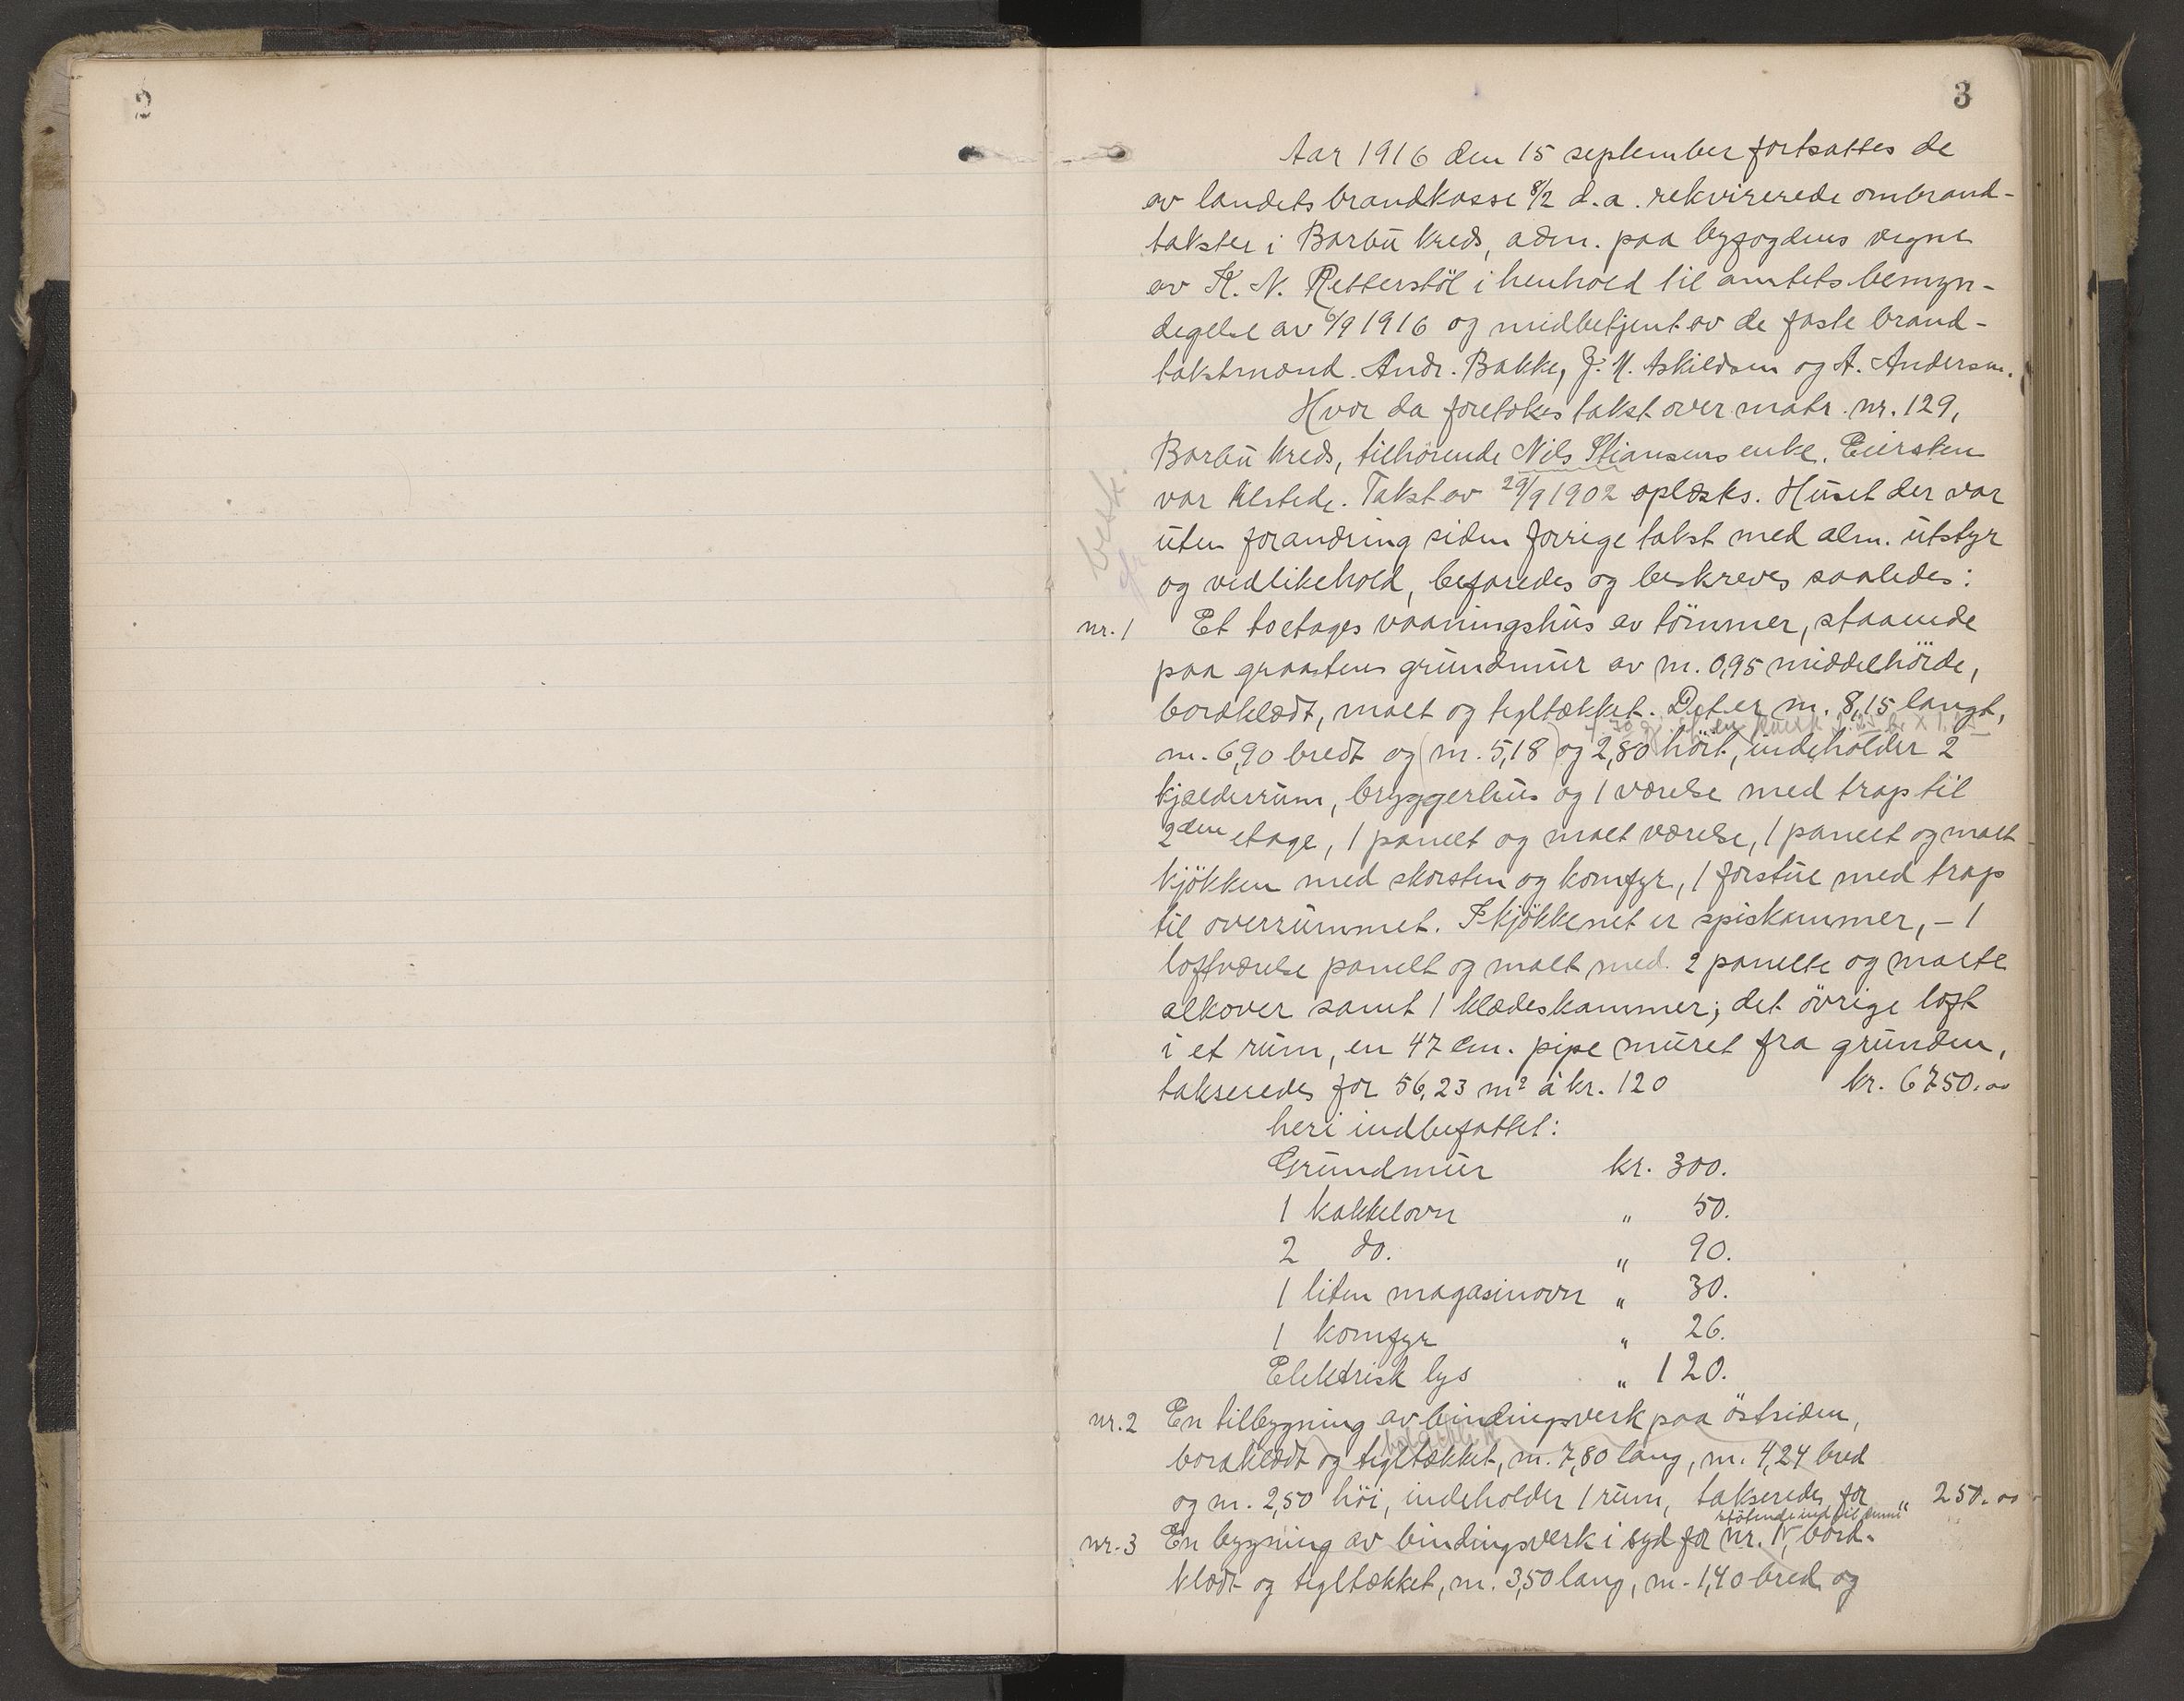 2
3
Aar 1916 den 15 september fortsattes de
av landets brandkasse 8/2 d.a. rekvirerede ombrand-
takster i Barbu kreds, adm. paa byfogdens vegne
av K. N. Retterstöl i henhold til amtets bemyn-
degelse av 6/9 1916 og midbetjent av de faste brand-
takstmænd Andr. Bakke, J. M. Askildsen og A. Andersen.
Hvor da foretokes takst over matr. nr. 129,
Barbu kreds, tilhörende Nils Stiansens enke. Eiersken
var tilstede. Takst av 29/9 1902 oplæstes. Huset der var
uten forandring siden forrige takst med alm. utstyr
og vedlikehold, befaredes og beskreves saaledes:
nr. 1 Et toetages vaaningshus av tömmer, staaende
paa graastens grundmur av m. 0,95 middelhöide,
bordklædt, malt og tegltækket. Det er m. 8,15 langt,
m. 6,90 bredt og (m. 5,18) og 2,80 höit, indeholder 2
kjælderrum, bryggerhus og 1 værelse med trap til
2den etage, 1 panelt og malt værelse, 1 panelt og malt
kjökken med skorsten og komfyr, 1 forstue med trap
til overrummet. I kjökkenet er spiskammer, - 1
loftværelse panelt og malt med 2 panelte og malte
alkover samt 1 klædeskammer; det övrige loft
i et rum, en 47 cm. pipe muret fra grunden,
takseredes for 56,23 m² à kr. 120 kr. 6750.00
heri indbefattet:
Grundmur kr. 300.
1 kakkelovn " 50.
2 do. " 90.
1 liten magasinovn " 30.
1 komfyr " 26.
Elektrisk lys " 120.
nr. 2 En tilbygning av bindingsverk paa östsiden,
bordklædt og tegltækket, m. 7,80 lang, m. 4,24 bred
og m. 2,50 höi, indeholder 1 rum, takseredes for " 250.00
stötende ind til denne
nr. 3 En bygning av bindingsverk i syd for nr. 1, bord-
klædt og tegltækket, m. 3,50 lang, m. 1,40 bred og